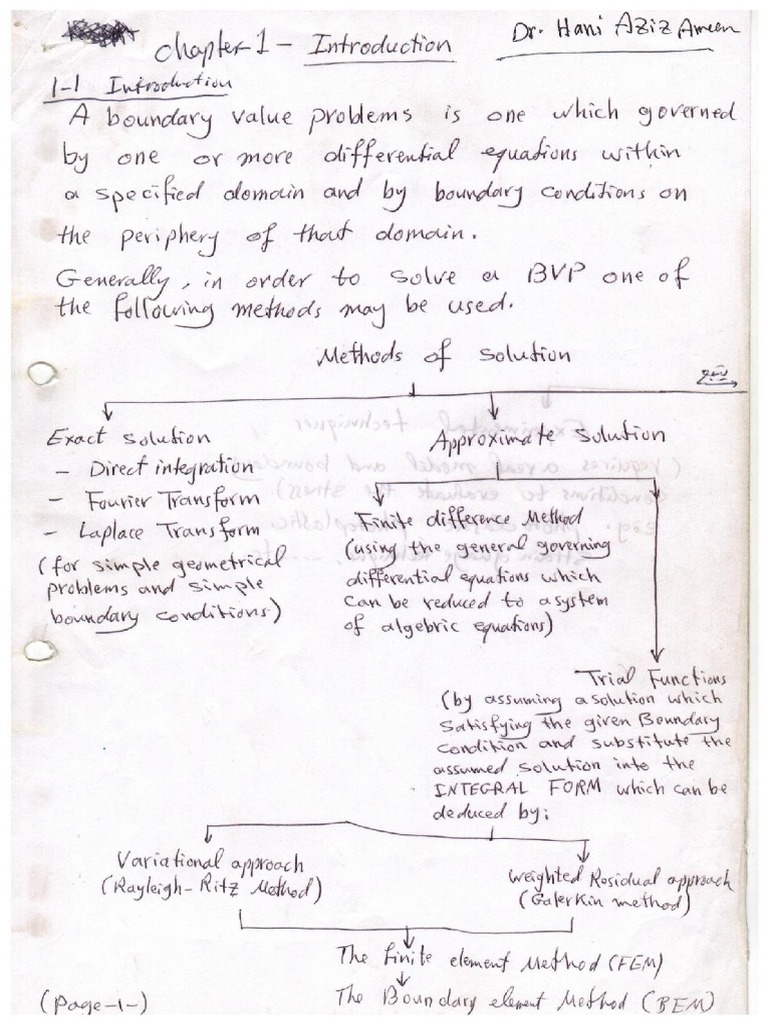 Chapter-1- Introduction
Dr. Hani Aziz Ameen
1-1 Introduction
A boundary value problems is one which governed
by one or more differential equations within
a specified domain and by boundary conditions on
the periphery of that domain.
Generally, in order to solve a BVP one of
the following methods may be used.
Methods of solution
Exact solution
- Direct integration
- Fourier Transform
- Laplace Transform
(for simple geometrical
problems and simple
boundary conditions)
Approximate solution
Finite difference Method
(using the general governing
differential equations which
can be reduced to a system
of algebric equations)
Trial Functions
(by assuming a solution which
satisfying the given Boundary
condition and substitute the
assumed solution into the
INTEGRAL FORM which can be
deduced by;
Variational approach
(Rayleigh-Ritz Method)
Weighted Residual approach
(Galerkin method)
The finite element Method (FEM)
The Boundary element Method (BEM)
(page-1-)